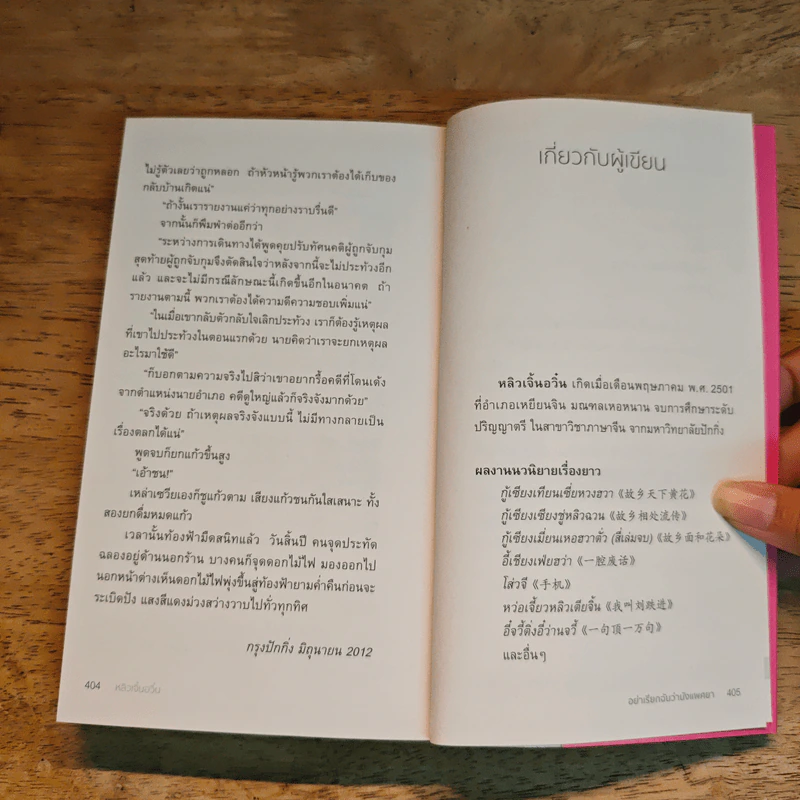 ไม่รู้ตัวเลยว่าถูกหลอก ถ้าหัวหน้ารู้พวกเราต้องได้เก็บของ
กลับบ้านเกิดแน่"
"ถ้างั้นเรารายงานแค่ว่าทุกอย่างราบรื่นดี"
จากนั้นก็พึมพำต่ออีกว่า
"ระหว่างการเดินทางได้พูดคุยปรับทัศนคติผู้ถูกจับกุม
สุดท้ายผู้ถูกจับกุมจึงตัดสินใจว่าหลังจากนี้จะไม่ประท้วงอีก
แล้ว และจะไม่มีกรณีลักษณะนี้เกิดขึ้นอีกในอนาคต ถ้า
รายงานตามนี้ พวกเราต้องได้ความดีความชอบเพิ่มแน่"
"ในเมื่อเขากลับตัวกลับใจเลิกประท้วง เราก็ต้องรู้เหตุผล
ที่เขาไปประท้วงในตอนแรกด้วย นายคิดว่าเราจะยกเหตุผล
อะไรมาใช้ดี"
"ก็บอกตามความจริงไปสิว่าเขาอยากรื้อคดีที่โดนเด้ง
จากตำแหน่งนายอำเภอ คดีดูใหญ่แล้วก็จริงจังมากด้วย"
"จริงด้วย ถ้าเหตุผลจริงจังแบบนี้ ไม่มีทางกลายเป็น
เรื่องตลกได้แน่"
พูดจบก็ยกแก้วขึ้นสูง
"เอ้าชน!"
เหล่าเซวียเองก็ชูแก้วตาม เสียงแก้วชนกันใสเสนาะ ทั้ง
สองยกดื่มหมดแก้ว
เวลานั้นท้องฟ้ามืดสนิทแล้ว วันสิ้นปี คนจุดประทัด
ฉลองอยู่ด้านนอกร้าน บางคนก็จุดดอกไม้ไฟ มองออกไป
นอกหน้าต่างเห็นดอกไม้ไฟพุ่งขึ้นสู่ท้องฟ้ายามค่ำคืนก่อนจะ
ระเบิดปัง แสงสีแดงม่วงสว่างวาบไปทั่วทุกทิศ
กรุงปักกิ่ง มิถุนายน 2012
404 หลิวเจิ้นอวิ๋น
เกี่ยวกับผู้เขียน
หลิวเจิ้นอวิ๋น เกิดเมื่อเดือนพฤษภาคม พ.ศ. 2501
ที่อำเภอเหยียนจิน มณฑลเหอหนาน จบการศึกษาระดับ
ปริญญาตรี ในสาขาวิชาภาษาจีน จากมหาวิทยาลัยปักกิ่ง
ผลงานนวนิยายเรื่องยาว
กู้เซียงเทียนเซี่ยหวงฮวา《故乡天下黄花》
กู้เซียงเซียงชู่หลิวฉวน《故乡相处流传》
กู้เซียงเมี่ยนเหอฮวาตั่ว (สี่เล่มจบ)《故乡面和花朵》
อี้เชียงเฟ่ยฮว่า《一腔废话》
โส่วจี《手机》
หว่อเจี้ยวหลิวเตียจิ้น《我叫刘跃进》
อี๋จวี้ติ่งอี๋ว่านจวี้《一句顶一万句》
และอื่นๆ
อย่าเรียกฉันว่านังแพศยา 405